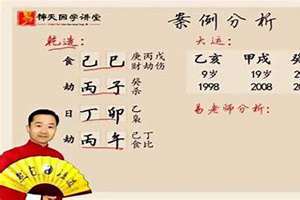 国学讲堂
案例分析
乾造:
大运:
食 己巳 庚丙戊
财劫伤
劫 丙子 癸
杀
日 丁卯 乙
枭
劫 丙午 己丁
食比
乙亥 甲戌
9岁 19岁 2
1998 2008 20
易老师分析: